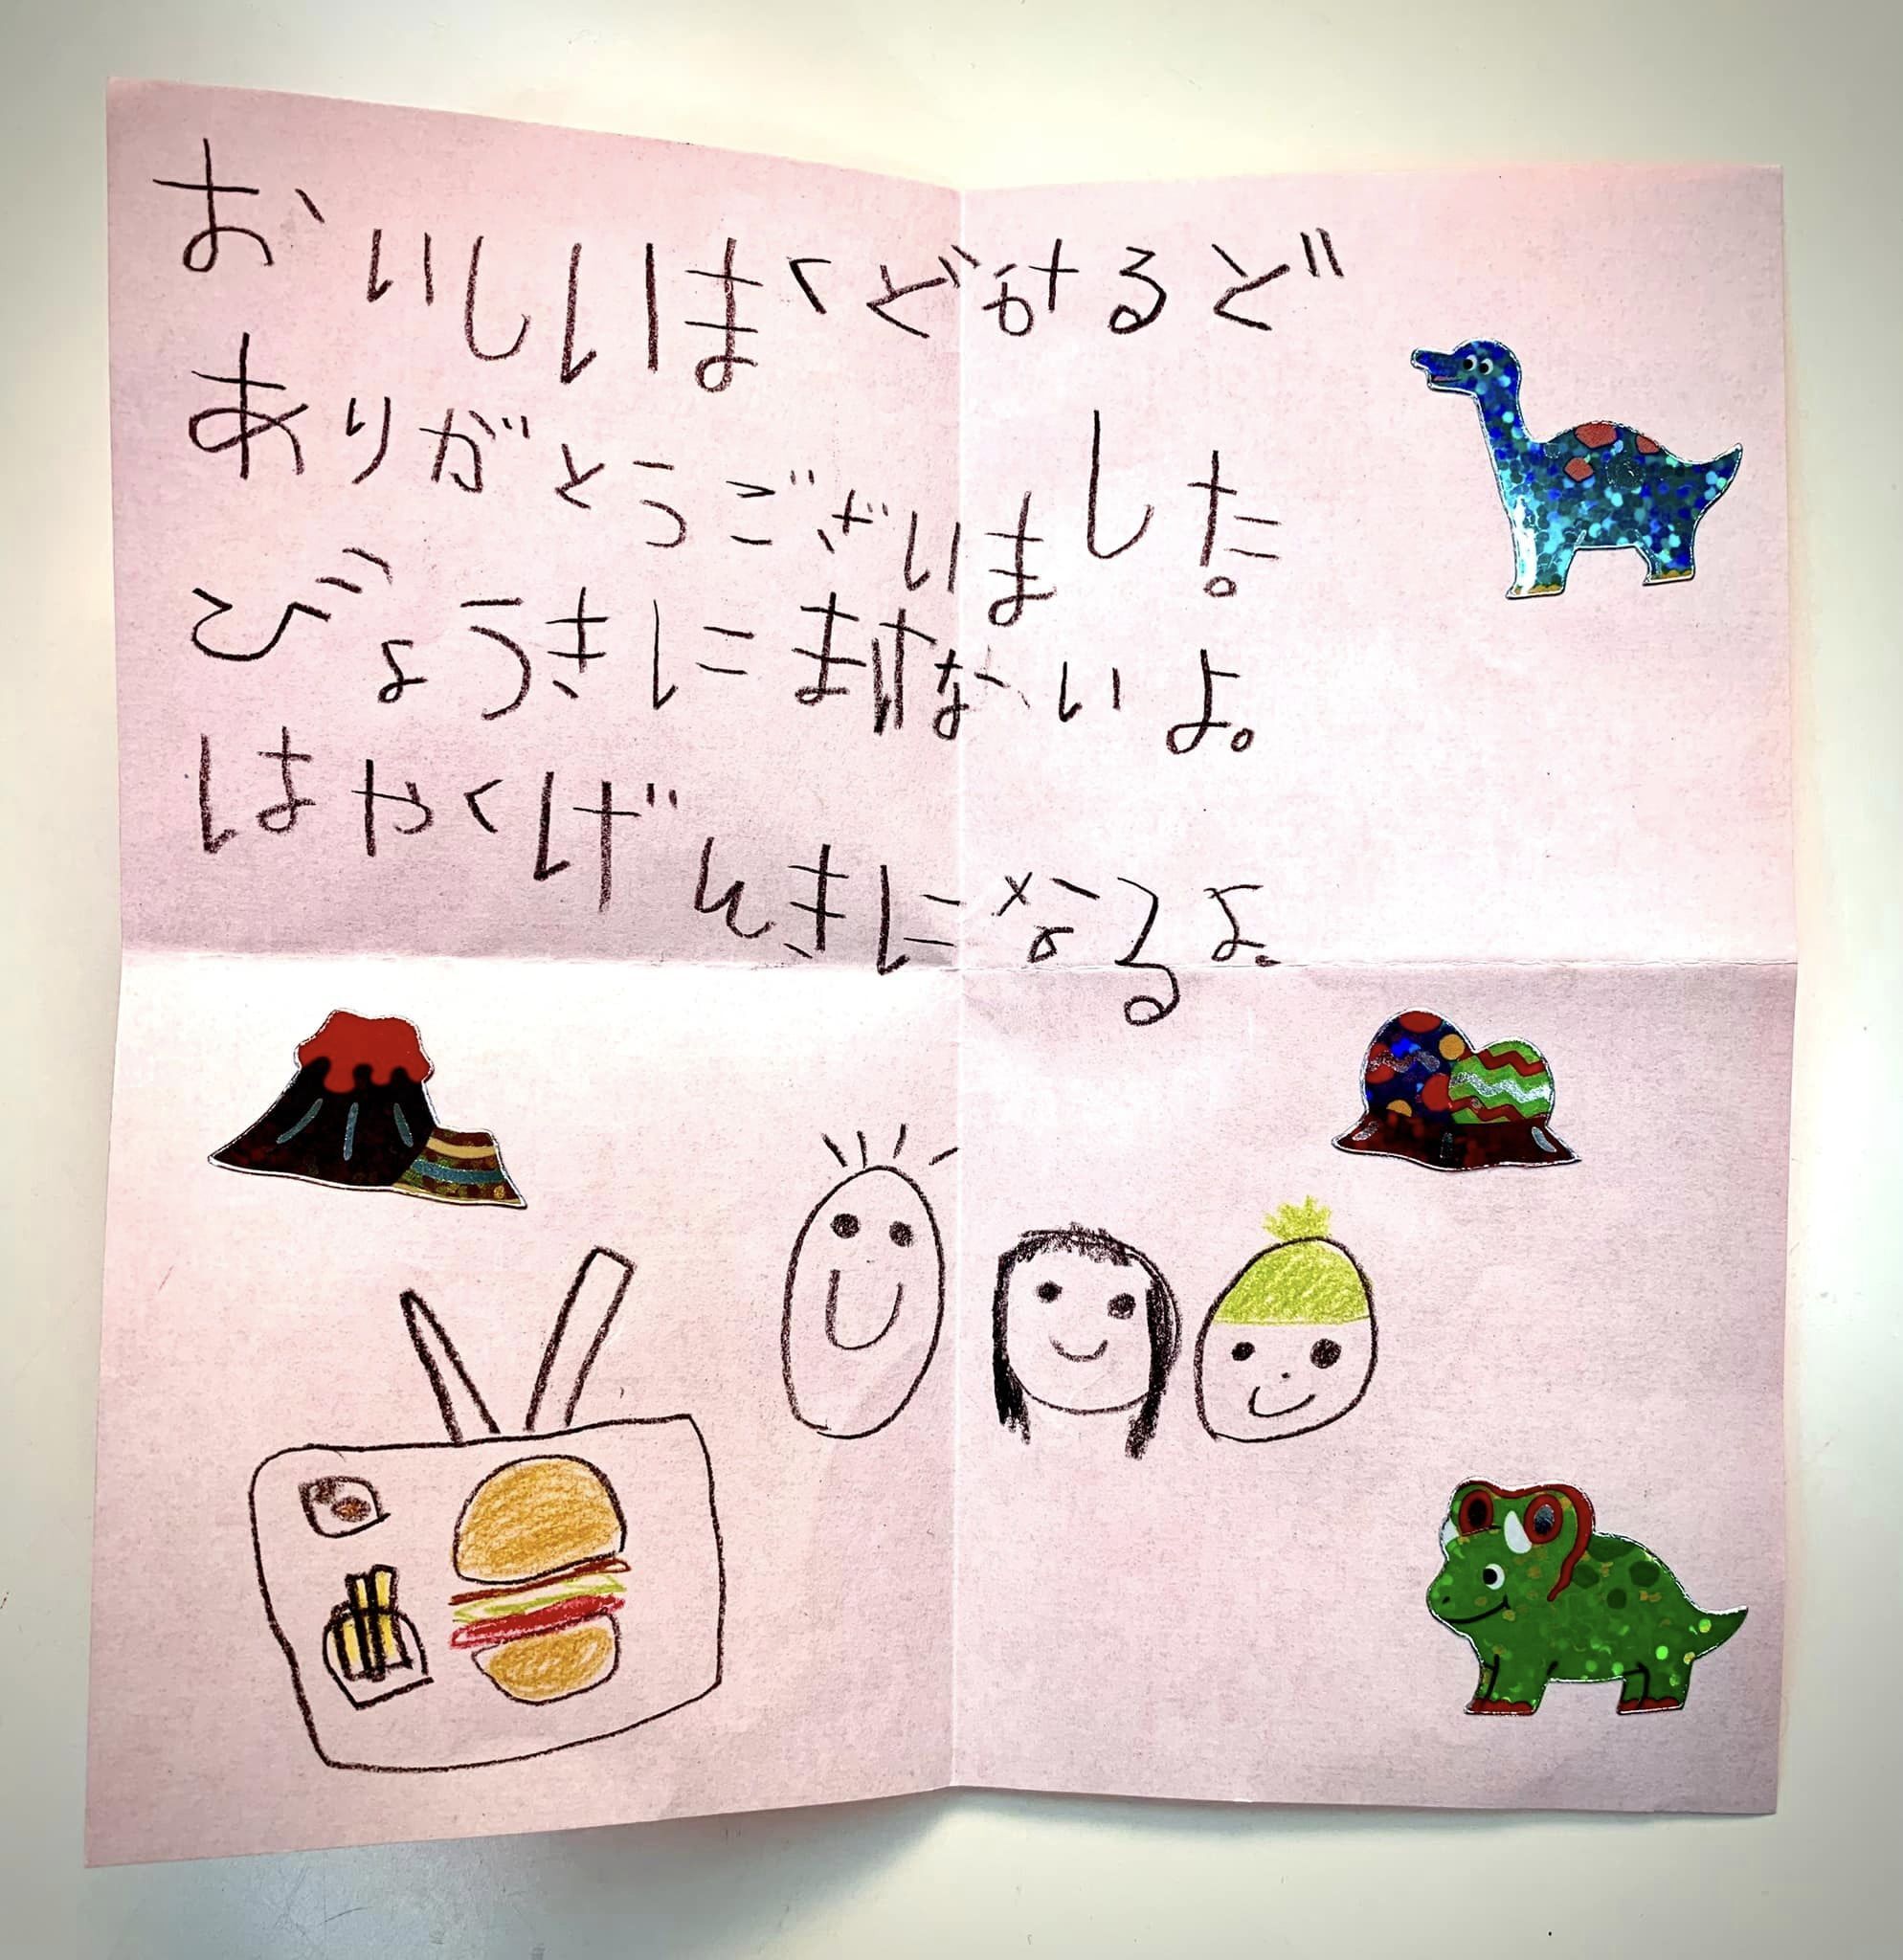 おいしいまくどなるど
ありがとうございました。
びょうきにまけないよ。
はやくげんきになるよ。